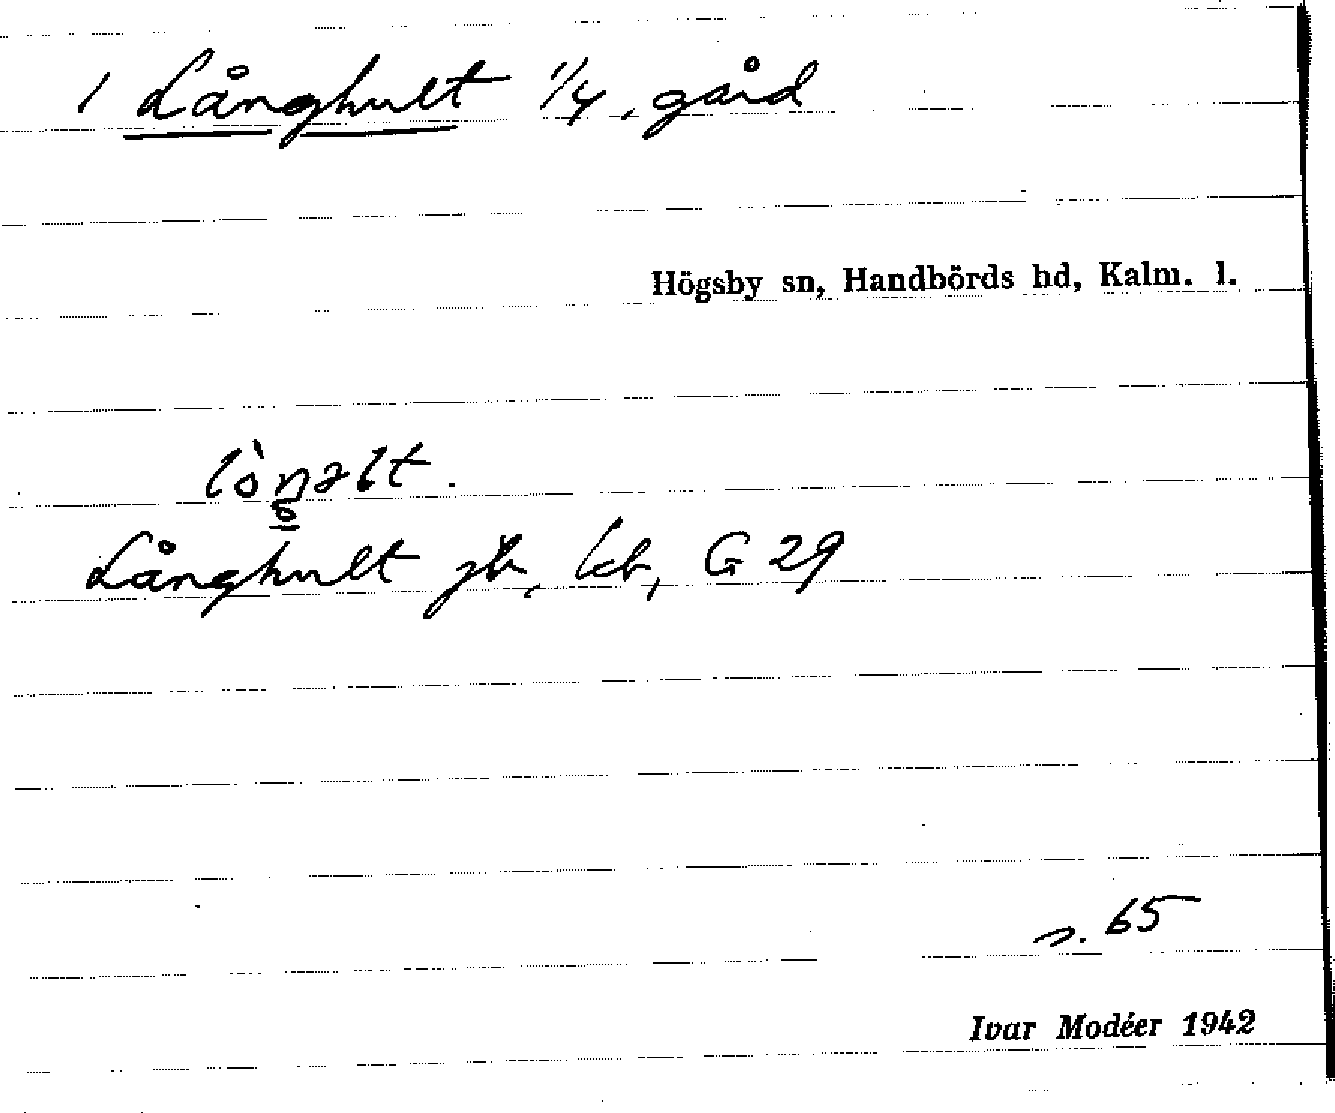 1 Långhult 1/4, gård
Högsby sn, Handbörds hd, Kalm. l.
lòŋəlt.
Långhult jb, kb, G 29
s. 65
Ivar Modéer 1942